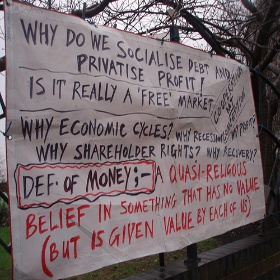 WHY DO WE SOCIALISE DEBT AND
PRIVATISE PROFIT!
IS IT REALLY A 'FREE' MARKET
WHY ECONOMIC CYCLES? WHY RECESSIONS? WHY PROFITS?
WHY SHAREHOLDER RIGHTS? WHY RECOVERY?
DEF. OF MONEY;- A QUASI-RELIGIOUS
BELIEF IN SOMETHING THAT HAS NO VALUE
(BUT IS GIVEN VALUE BY EACH OF US)